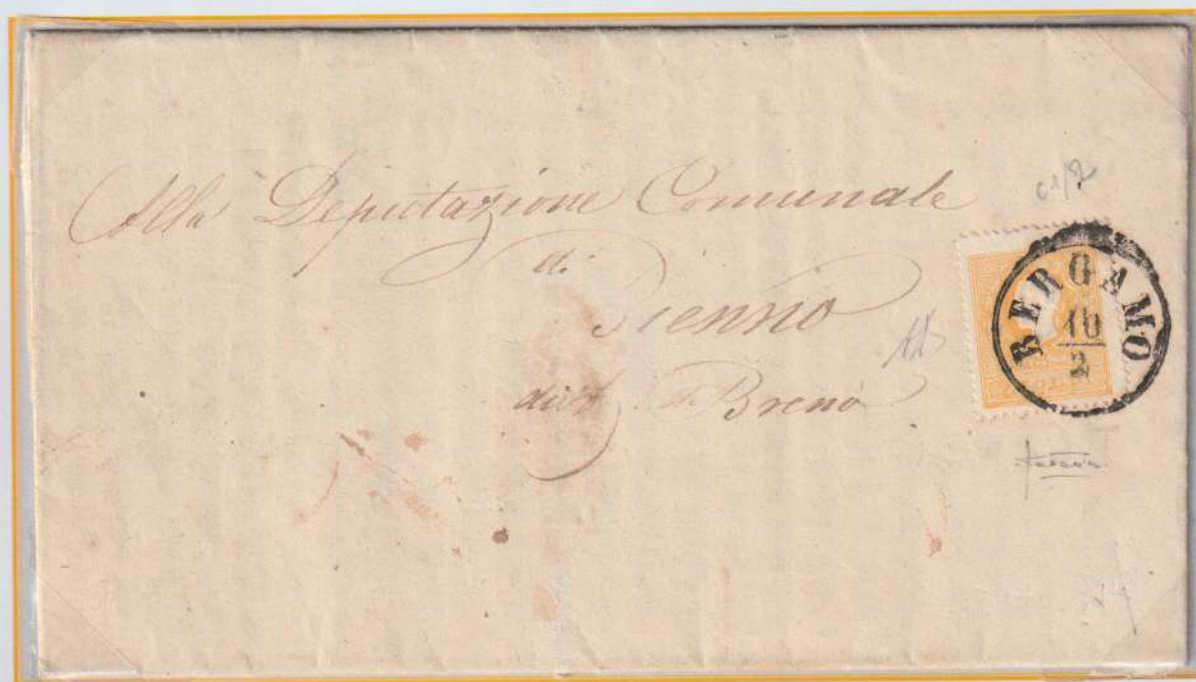 Alla Deputazione Comunale
di
Bienno
Breno
BERGAMO
10
2